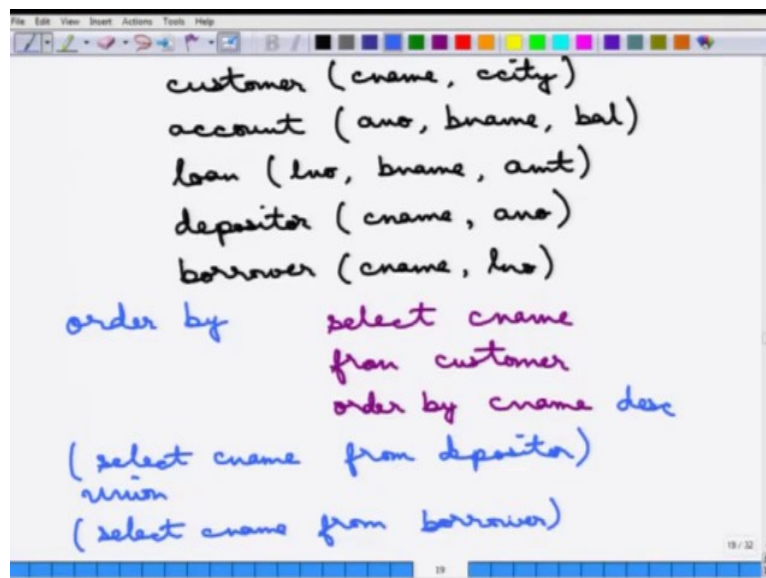 File Edit View Insert Actions Tools Help
B I
customer (cname, ccity)
account (ano, bname, bal)
loan (lno, bname, amt)
depositor (cname, ano)
borrower (cname, lno)
order by select cname
from customer
order by cname desc
(select cname from depositor)
union
(select cname from borrower)
19 / 32
19